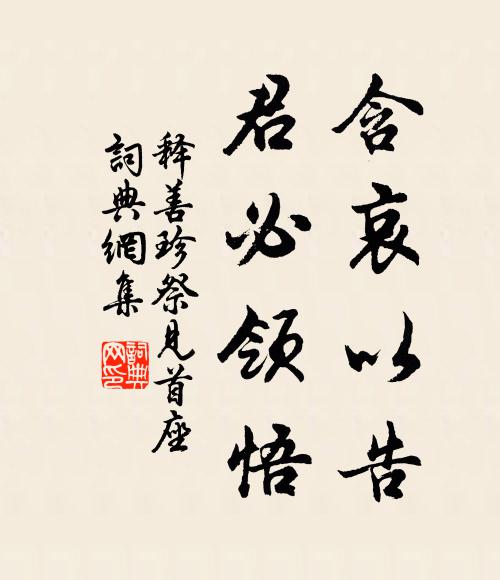 含哀以告
君必領悟
释善珍祭見首座
詞典網集
詞典
网印